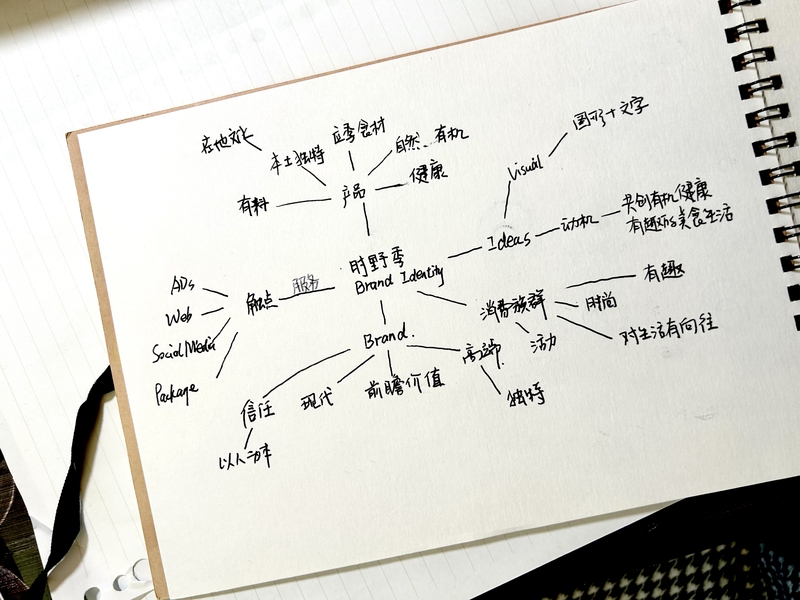 在地文化
应季食材
本土独特
自然、有机
有料
产品
健康
Visual
图形+文字
时野季
Brand Identity
Ideas
动机
共创有机健康
有趣的美食生活
ADs
Web
Social Media
Package
触点
服务
消费族群
有趣
时尚
对生活有向往
活力
Brand.
信任
以人为本
现代
前瞻价值
高端.
独特